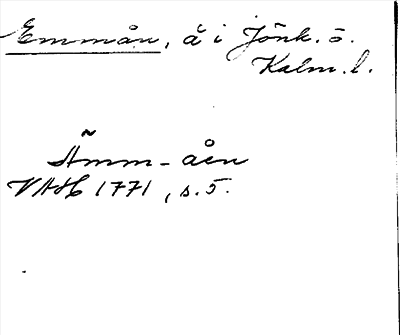 Emmån, å i Jönk. ö.
Kalm. l.
Ämm-åen
VAH 1771, s. 5.